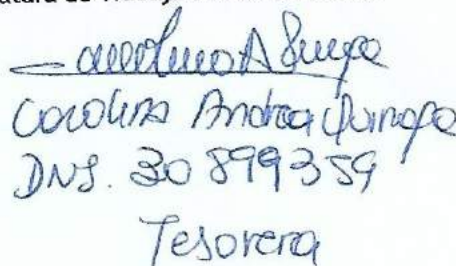 Carolina A
Carolina Andrea Quiroga
DNI. 30 899 359
Tesorera